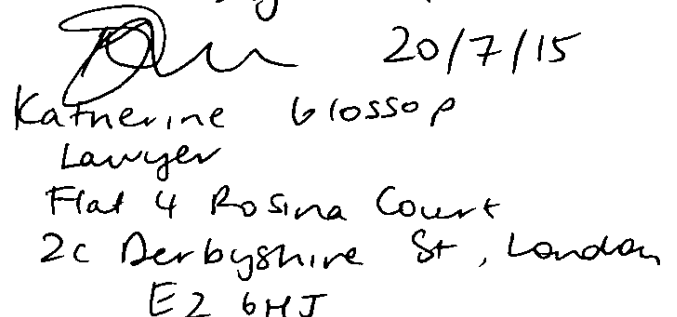 20/7/15
Katherine Glossop
Lawyer
Flat 4 Rosina Court
2c Derbyshire St, London
E2 6HJ